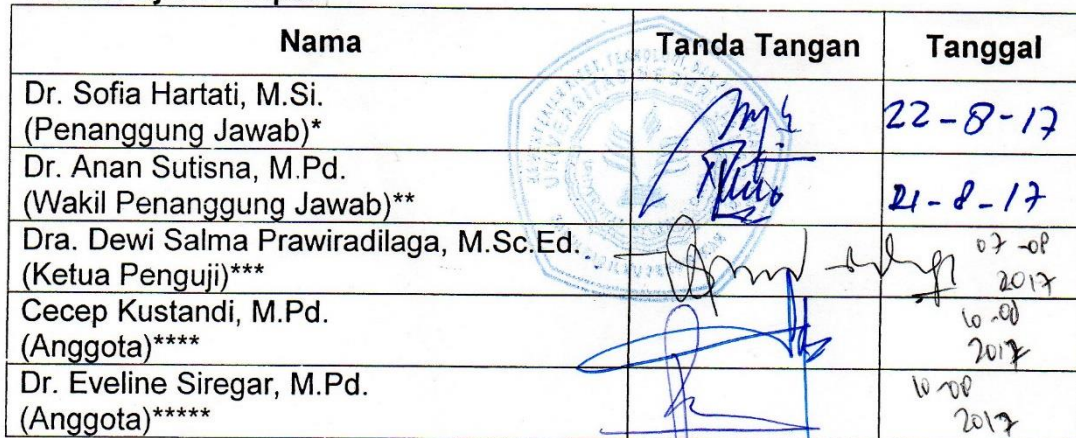 Nama Tanda Tangan Tanggal
Dr. Sofia Hartati, M.Si.
(Penanggung Jawab)* 22-8-17
Dr. Anan Sutisna, M.Pd.
(Wakil Penanggung Jawab)** 21-8-17
Dra. Dewi Salma Prawiradilaga, M.Sc.Ed. 07-08
(Ketua Penguji)*** 2017
Cecep Kustandi, M.Pd. 10-08
(Anggota)**** 2017
Dr. Eveline Siregar, M.Pd. 10-08
(Anggota)***** 2017